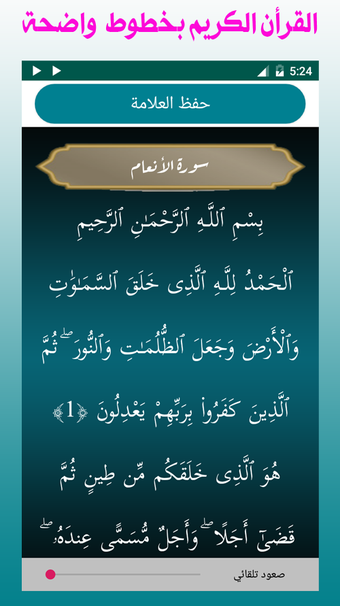 القرأن الكريم بخطوط واضحة
5:24
حفظ العلامة
سورة الأنعام
بِسْمِ ٱللَّهِ ٱلرَّحْمَـٰنِ ٱلرَّحِيمِ
ٱلْحَمْدُ لِلَّهِ ٱلَّذِى خَلَقَ ٱلسَّمَـٰوَٰتِ
وَٱلْأَرْضَ وَجَعَلَ ٱلظُّلُمَـٰتِ وَٱلنُّورَ ۖ ثُمَّ
ٱلَّذِينَ كَفَرُوا۟ بِرَبِّهِمْ يَعْدِلُونَ ﴿1﴾
هُوَ ٱلَّذِى خَلَقَكُم مِّن طِينٍ ثُمَّ
قَضَىٰٓ أَجَلًا ۖ وَأَجَلٌ مُّسَمًّى عِندَهُۥ ۖ
صعود تلقائي